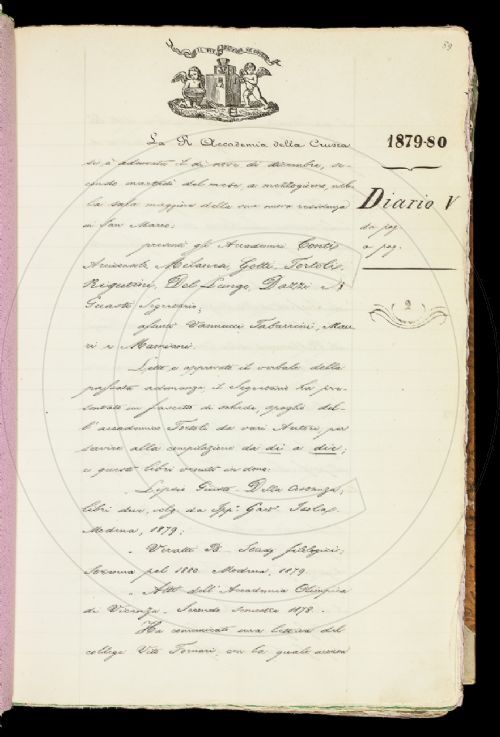 59
La R. Accademia della Crusca
si è adunata il dì nove di dicembre, se-
condo martedì del mese, a mezzogiorno, nel-
la sala maggiore della sua nuova residenza
in San Marco;
presenti gli Accademici Conti
Arciconsolo, Milanesi, Gotti, Tortoli,
Rigutini, Del Lungo, Dazzi e
Guasti Segretario;
assenti Vannucci Tabarrini, Mau-
ri e
Letto e approvato il verbale della
passata adunanza, il Segretario ha pre-
sentato un fascetto di schede, spoglio del-
l'accademico Tortoli da vari Autori, per
servire alla compilazione da di a die;
e questi libri venuti in dono:
Lipsio Giusto. Della Costanza,
libri due, volg. da Gio.
Modena, 1879;
Veratti B. Studj filologici;
Strenna pel 1880. Modena, 1879.
Atti dell'Accademia Olimpica
di Vicenza. Secondo semestre 1878.
Ha comunicato una lettera del
collega Vito Fornari, con la quale
1879-80
Diario V
da pag.
a pag.
2